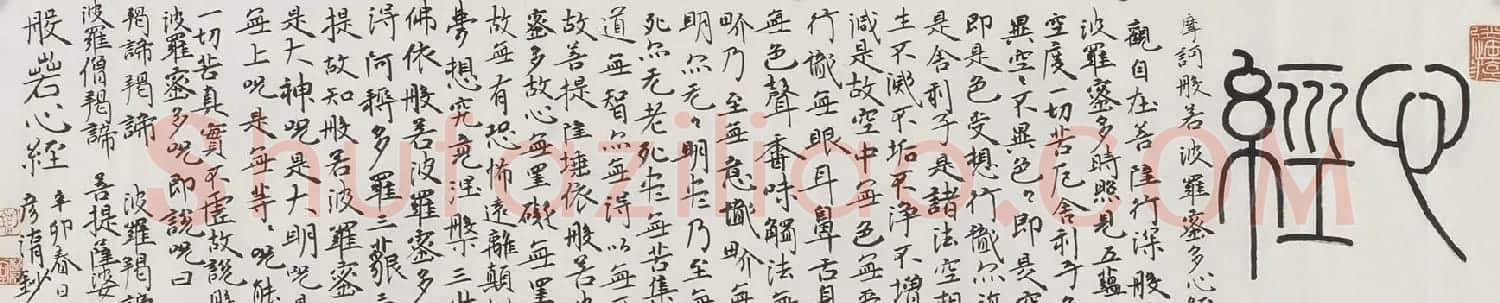 心經
摩訶般若波羅蜜多心經
觀自在菩薩行深般
波羅蜜多時照見五蘊
空度一切苦厄舍利子
異空々不異色々即是空
即是色受想行識亦復
是舍利子是諸法空相
生不滅不垢不淨不增
減是故空中無色無受
行識無眼耳鼻舌身
無色聲香味觸法無
界乃至無意識界無
明亦无々明盡乃至無
死亦无老死盡無苦集
道無智亦無得以無
故菩提薩埵依般若
蜜多故心無罣礙無罣
故無有恐怖遠離顛
夢想究竟涅槃三世
佛依般若波羅蜜多
得阿耨多羅三藐三
提故知般若波羅蜜
是大神呪是大明呪
無上呪是無等々呪能
一切苦真實不虛故說般
波羅蜜多呪即說呪曰
揭諦揭諦 波羅揭諦
波羅僧揭諦 菩提薩婆
般若心經 辛卯春日
Shufaziliao.COM